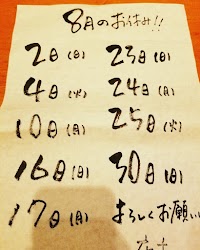 8月のお休み!!
2日(日) 23日(日)
4日(火) 24日(月)
10日(月) 25日(火)
16日(日) 30日(日)
17日(月) よろしくお願い